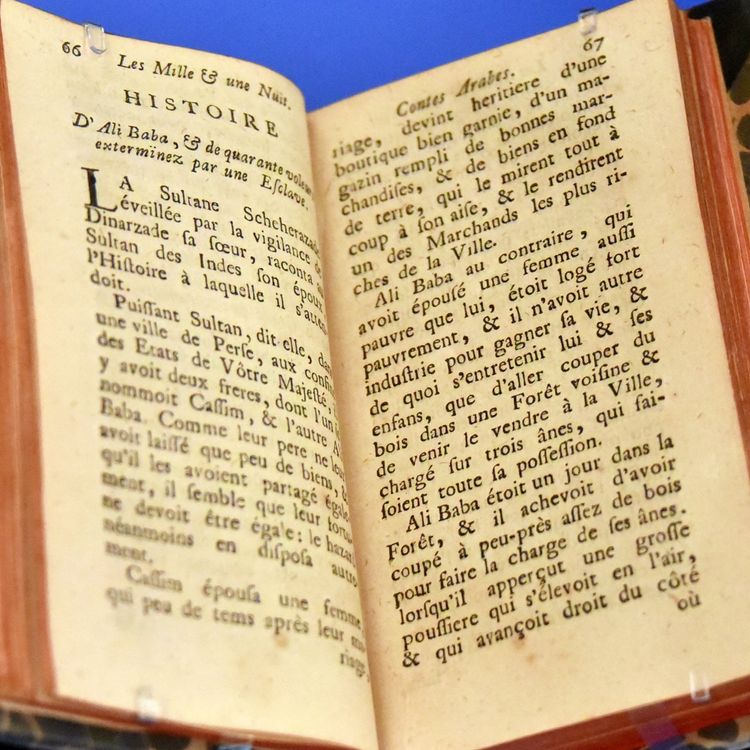 66 Les Mille & une Nuit.
HISTOIRE
D'Ali Baba, & de quarante voleurs
exterminez par une Eſclave.
LA Sultane Scheherazade
éveillée par la vigilance de
Dinarzade ſa ſœur, raconta au
Sultan des Indes ſon époux
l'Hiſtoire à laquelle il s'atten-
doit.
Puiſſant Sultan, dit elle, dans
une ville de Perſe, aux confins
des Etats de Vôtre Majeſté, il
y avoit deux freres, dont l'un ſe
nommoit Caſſim, & l'autre Ali
Baba. Comme leur pere ne leur
avoit laiſſé que peu de biens, &
qu'il les avoient partagé égale-
ment, il ſemble que leur fortune
ne devoit être égale: le hazard
néanmoins en diſpoſa autre-
ment.
Caſſim épouſa une femme
qui peu de tems après leur ma-
riage,
67
Contes Arabes.
riage, devint heritiere d'une
boutique bien garnie, d'un ma-
gazin rempli de bonnes mar-
chandiſes, & de biens en fond
de terre, qui le mirent tout à
coup à ſon aiſe, & le rendirent
un des Marchands les plus ri-
ches de la Ville.
Ali Baba au contraire, qui
avoit épouſé une femme auſſi
pauvre que lui, étoit logé fort
pauvrement, & il n'avoit autre
induſtrie pour gagner ſa vie, &
de quoi s'entretenir lui & ſes
enfans, que d'aller couper du
bois dans une Forêt voiſine &
de venir le vendre à la Ville,
chargé ſur trois ânes, qui fai-
ſoient toute ſa poſſeſſion.
Ali Baba étoit un jour dans la
Forêt, & il achevoit d'avoir
coupé à peu-près aſſez de bois
pour faire la charge de ſes ânes.
lorſqu'il apperçut une groſſe
pouſſiere qui s'élevoit en l'air,
& qui avançoit droit du côté
où